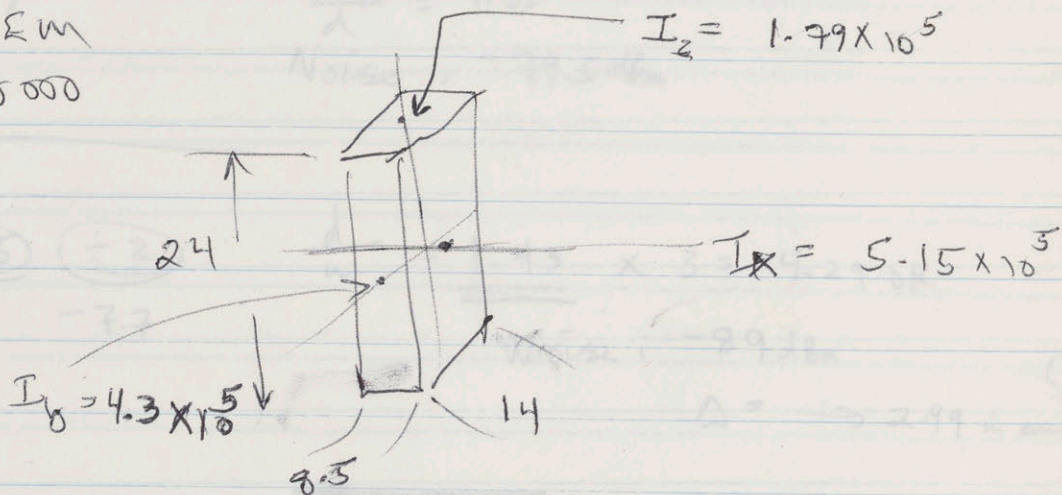 I_z = 1.79 × 10^5
24
I_x = 5.15 × 10^5
I_y = 4.3 × 10^5
14
8.5